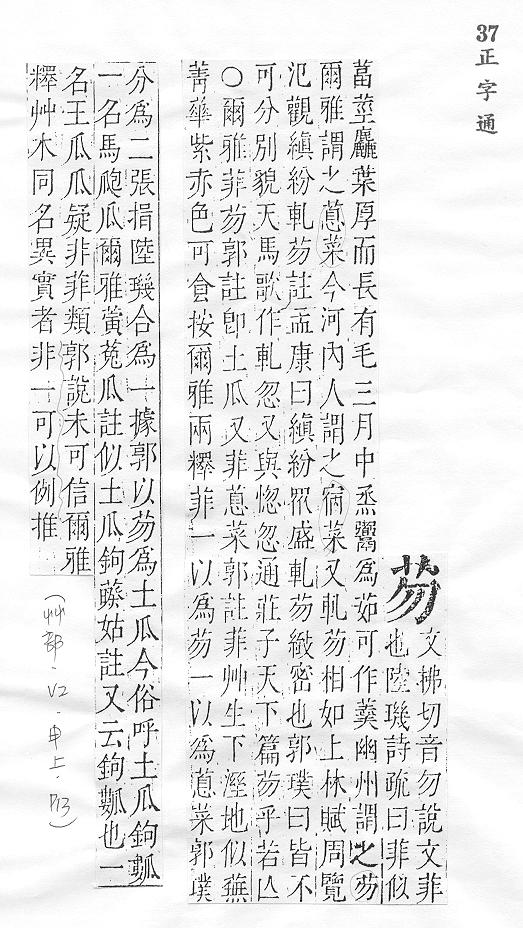 37
正字通
芴
文拂切音勿說文菲
也陸璣詩疏曰菲似
葍莖麤葉厚而長有毛三月中烝鬻為茹可作羹幽州謂之芴
爾雅謂之蒠菜今河內人謂之宿菜又軋芴相如上林賦周覽
氾觀縝紛軋芴註孟康曰縝紛眾盛軋芴緻密也郭璞曰皆不
可分別貌天馬歌作軋忽又與惚忽通莊子天下篇芴乎若亾
○爾雅菲芴郭註卽土瓜又菲蒠菜郭註菲艸生下溼地似蕪
菁華紫赤色可食按爾雅兩釋菲一以為芴一以為蒠菜郭璞
分為二張揖陸璣合為一據郭以芴為土瓜今俗呼土瓜鉤瓤
一名馬瓟瓜爾雅黃菟瓜註似土瓜鉤藈姑註又云鉤瓤也一
名王瓜瓜疑非菲類郭說未可信爾雅
釋艸木同名異實者非一可以例推
(艸部．V2．申上．P13)